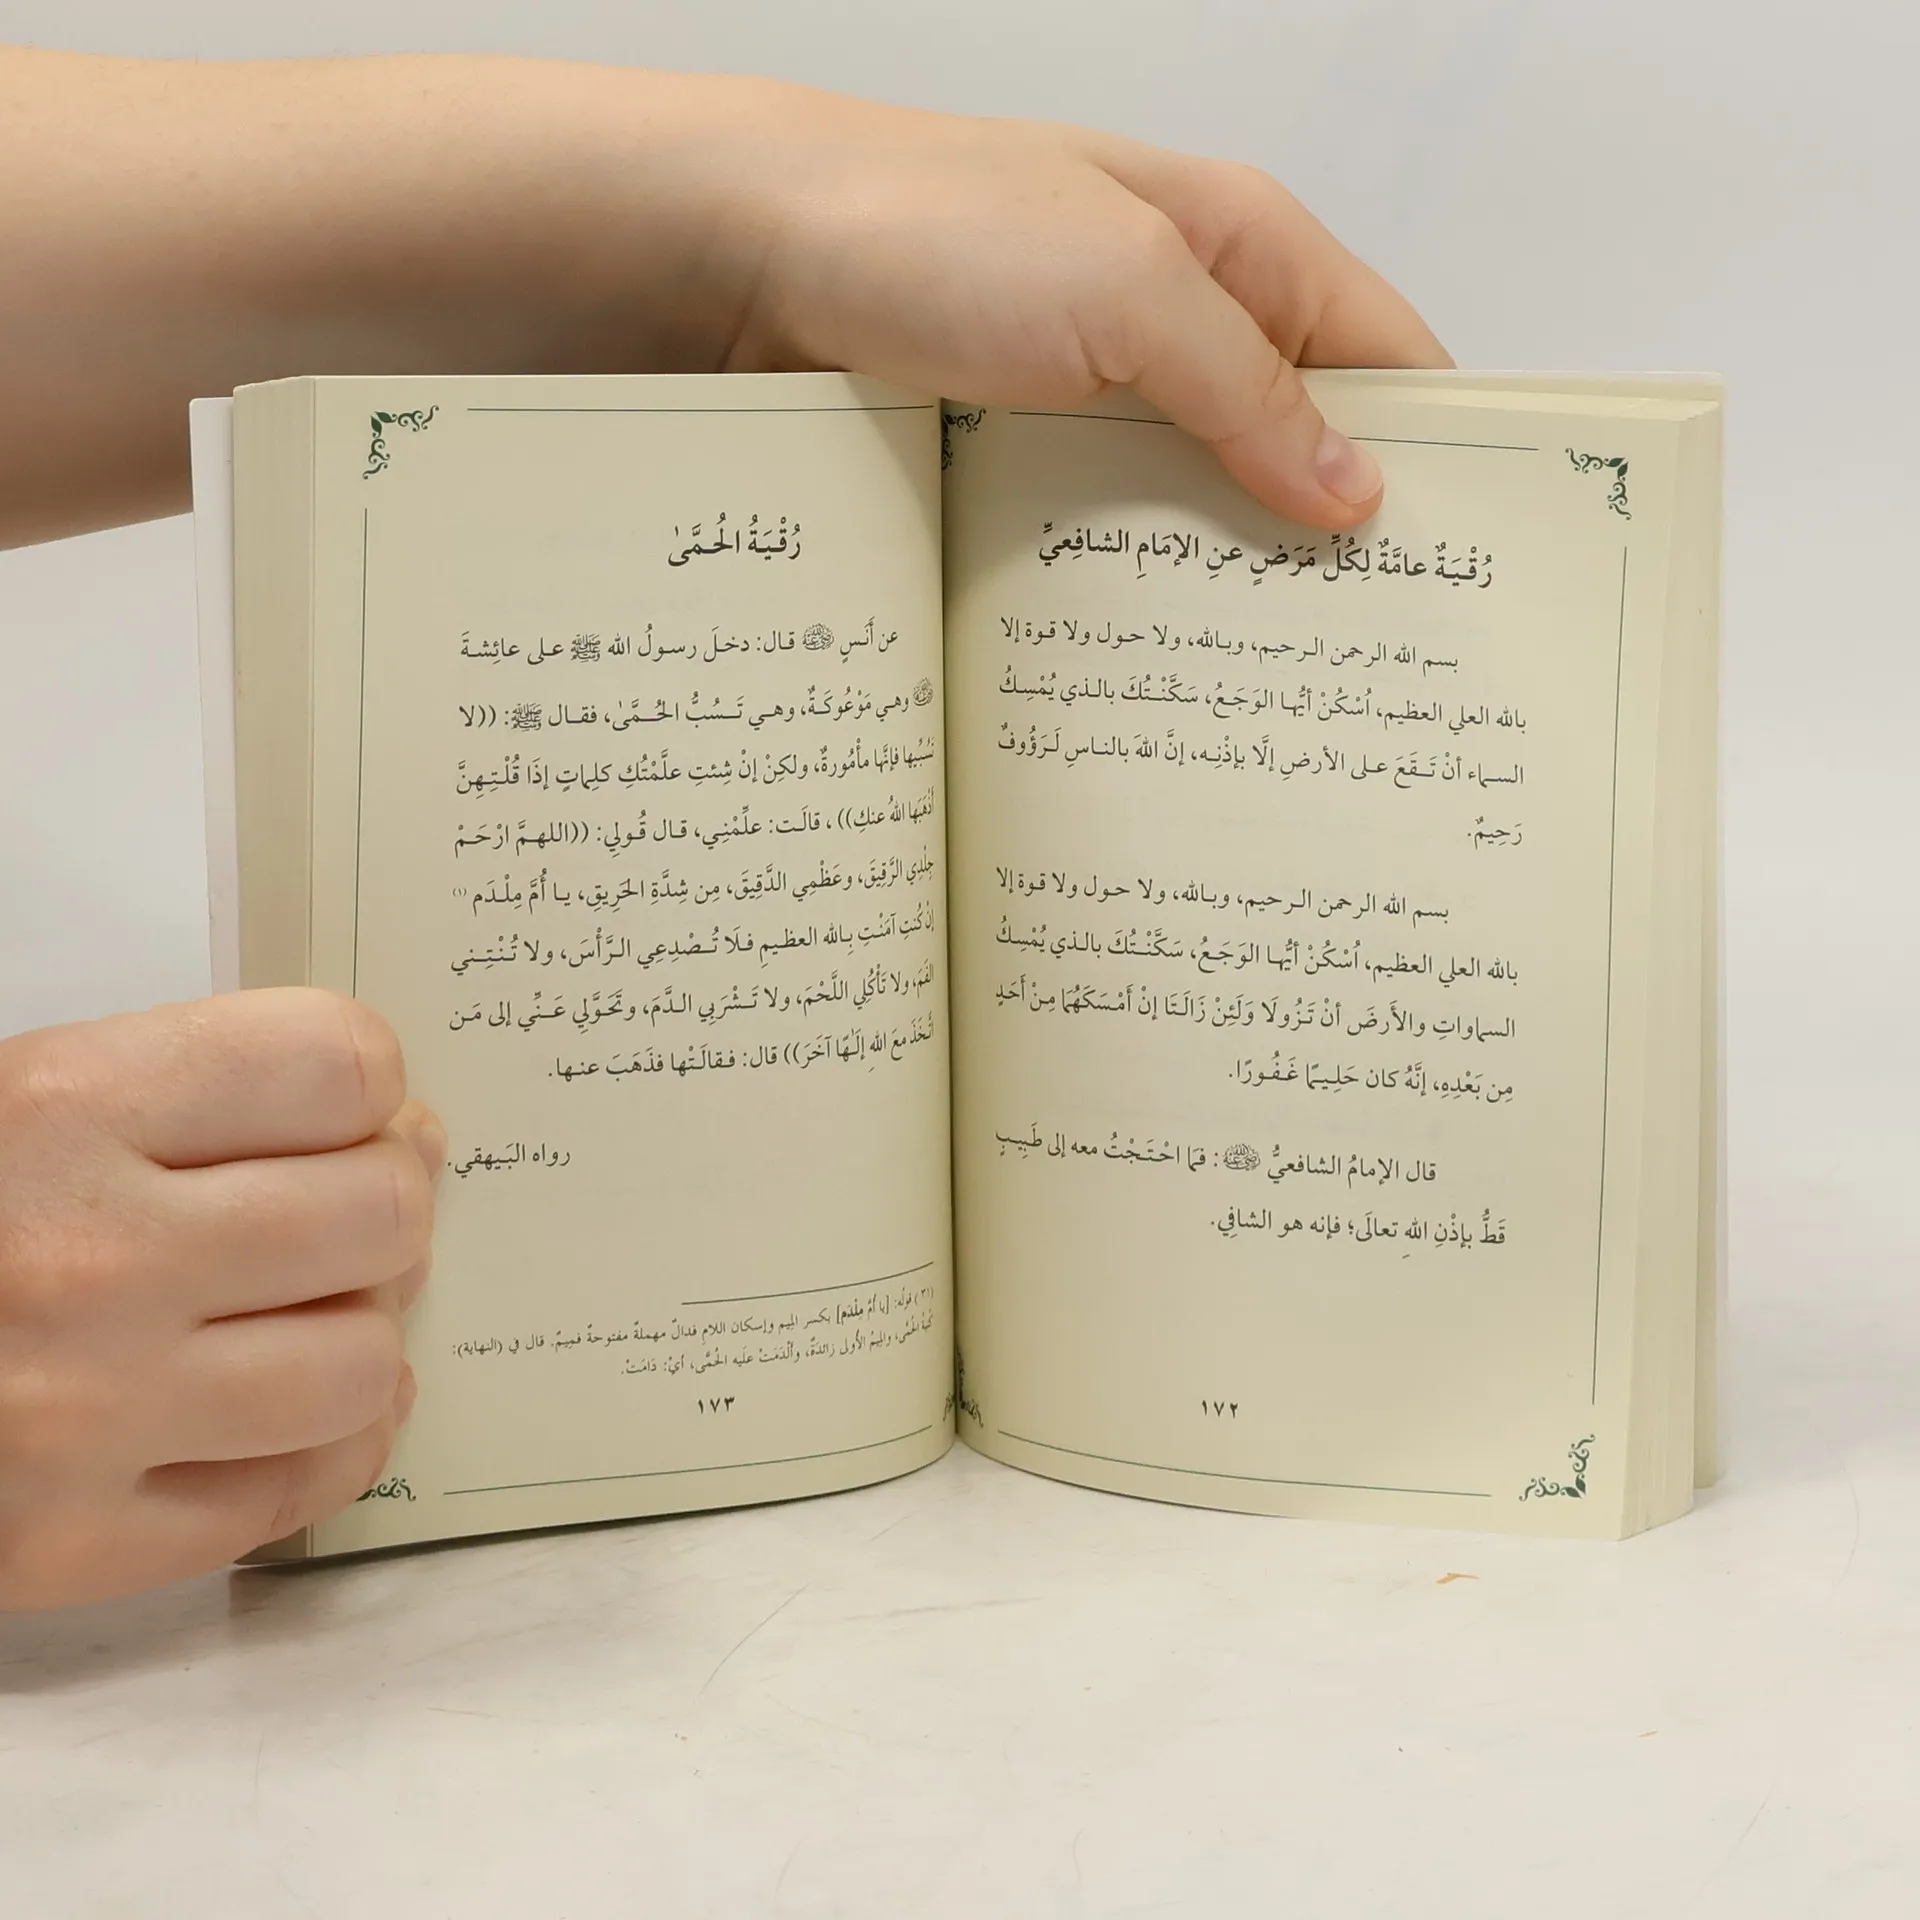 رُقْيَةٌ عامَّةٌ لِكُلِّ مَرَضٍ عنِ الإمَامِ الشافِعيِّ
بسم الله الرحمن الرحيم، وبالله، ولا حول ولا قوة إلا
بالله العلي العظيم، اُسْكُنْ أيُّها الوَجَعُ، سَكَّنْتُكَ بالذي يُمْسِكُ
السماء أنْ تَقَعَ على الأرضِ إلَّا بإذْنِه، إنَّ اللهَ بالناسِ لَرَؤُوفٌ
رَحِيمٌ.
بسم الله الرحمن الرحيم، وبالله، ولا حول ولا قوة إلا
بالله العلي العظيم، اُسْكُنْ أيُّها الوَجَعُ، سَكَّنْتُكَ بالذي يُمْسِكُ
السماواتِ والأَرضَ أنْ تَزُولَا وَلَئِنْ زَالَتَا إنْ أَمْسَكَهُمَا مِنْ أَحَدٍ
مِن بَعْدِهِ، إنَّهُ كان حَلِيمًا غَفُورًا.
قال الإمامُ الشافعيُّ رضي الله عنه: فمَا احْتَجْتُ معه إلى طَبِيبٍ
قَطُّ بإذْنِ اللهِ تعالَى؛ فإنه هو الشافِي.
١٧٢
رُقْيَةُ الحُمَّىٰ
عن أَنَسٍ رضي الله عنه قال: دخلَ رسولُ الله ﷺ على عائِشةَ
رضي الله عنها وهي مَوْعُوكَةٌ، وهي تَسُبُّ الحُمَّىٰ، فقال ﷺ: ((لا
تَسُبِّيها فإنَّها مأْمُورةٌ، ولكِنْ إنْ شِئتِ علَّمْتُكِ كلِماتٍ إذَا قُلْتِهِنَّ
أَذْهَبَها اللهُ عنكِ))، قالَت: علِّمْنِي، قال قُولِي: ((اللهمَّ ارْحَمْ
جِلْدِي الرَّقِيقَ، وعَظْمِي الدَّقِيقَ، مِن شِدَّةِ الحَرِيقِ، يا أُمَّ مِلْدَم (١)
إنْ كُنتِ آمَنْتِ بِالله العظيمِ فلَا تُصْدِعِي الرَّأْسَ، ولا تُنْتِني
الفَمَ، ولا تَأْكُلِي اللَّحْمَ، ولا تَشْرَبِي الدَّمَ، وتَحَوَّلِي عَنِّي إلى مَن
اتَّخَذَ معَ اللهِ إلَٰهًا آخَرَ)) قال: فقالَتْها فذَهَبَ عنها.
رواه البَيهقي.
(٣١) قولُه: [يا أُمَّ مِلْدَم] بكسر المِيم وإسكان اللامِ فدالٌ مهملةٌ مفتوحةٌ فمِيمٌ. قال في (النهاية):
كُنيةُ الحُمَّى، والمِيمُ الأُولى زائدَةٌ، وأَلْدَمَتْ علَيه الحُمَّى، أيْ: دَامَتْ.
١٧٣